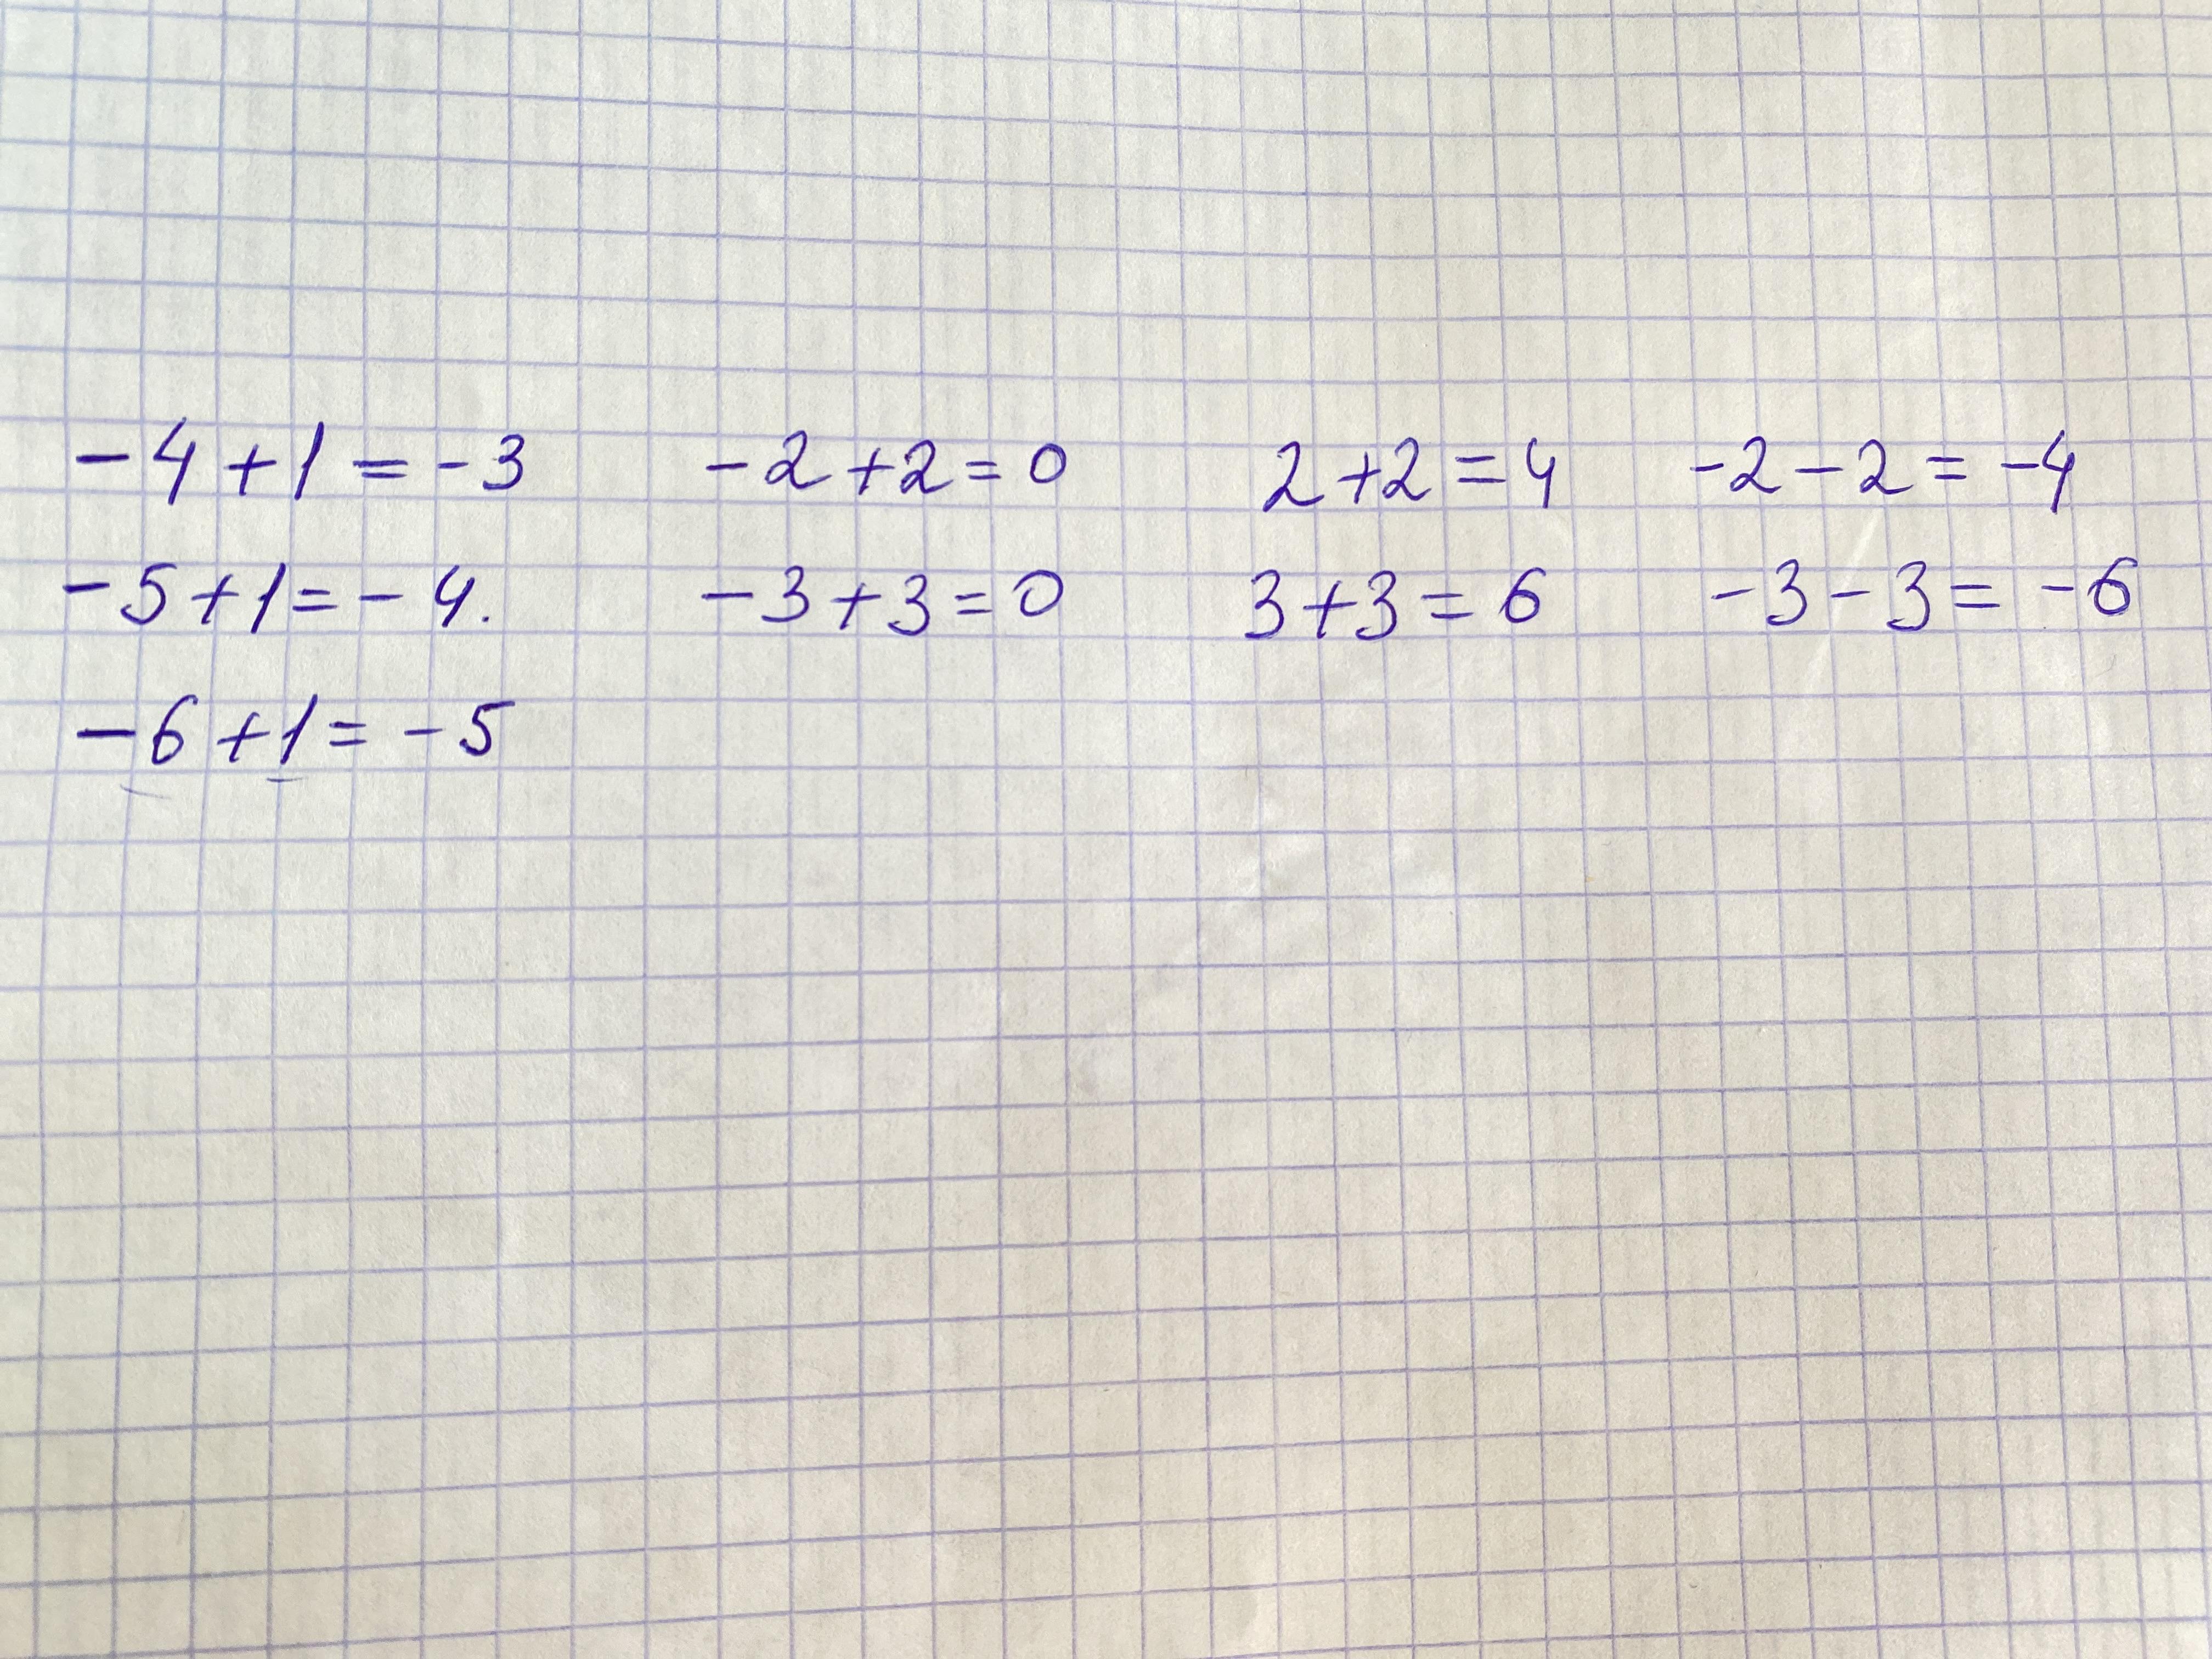 -4+1=-3 -2+2=0 2+2=4 -2-2=-4
-5+1=-4. -3+3=0 3+3=6 -3-3=-6
-6+1=-5